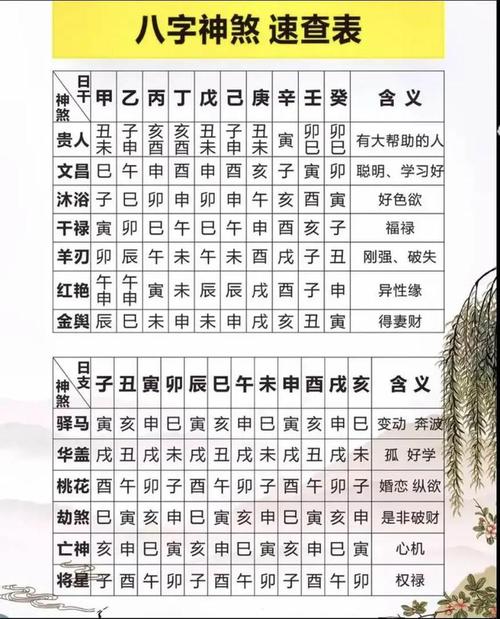 八字神煞 速查表
日干 神煞 甲 乙 丙 丁 戊 己 庚 辛 壬 癸 含 义
贵人 丑未 子申 亥酉 亥酉 丑未 子申 丑未 寅 卯巳 卯巳 有大帮助的人
文昌 巳 午 申 酉 申 酉 亥 子 寅 卯 聪明、学习好
沐浴 子 巳 卯 申 卯 申 午 亥 酉 寅 好色欲
干禄 寅 卯 巳 午 巳 午 申 酉 亥 子 福禄
羊刃 卯 辰 午 未 午 未 酉 戌 子 丑 刚强、破失
红艳 午申 午申 寅 未 辰 辰 戌 酉 子 申 异性缘
金舆 辰 巳 未 申 未 申 戌 亥 丑 寅 得妻财
日支 神煞 子 丑 寅 卯 辰 巳 午 未 申 酉 戌 亥 含 义
驿马 寅 亥 申 巳 寅 亥 申 巳 寅 亥 申 巳 变动 奔波
华盖 辰 丑 戌 未 辰 丑 戌 未 辰 丑 戌 未 孤 好学
桃花 酉 午 卯 子 酉 午 卯 子 酉 午 卯 子 婚恋 纵欲
劫煞 巳 寅 亥 申 巳 寅 亥 申 巳 寅 亥 申 是非破财
亡神 亥 申 巳 寅 亥 申 巳 寅 亥 申 巳 寅 心机
将星 子 酉 午 卯 子 酉 午 卯 子 酉 午 卯 权禄